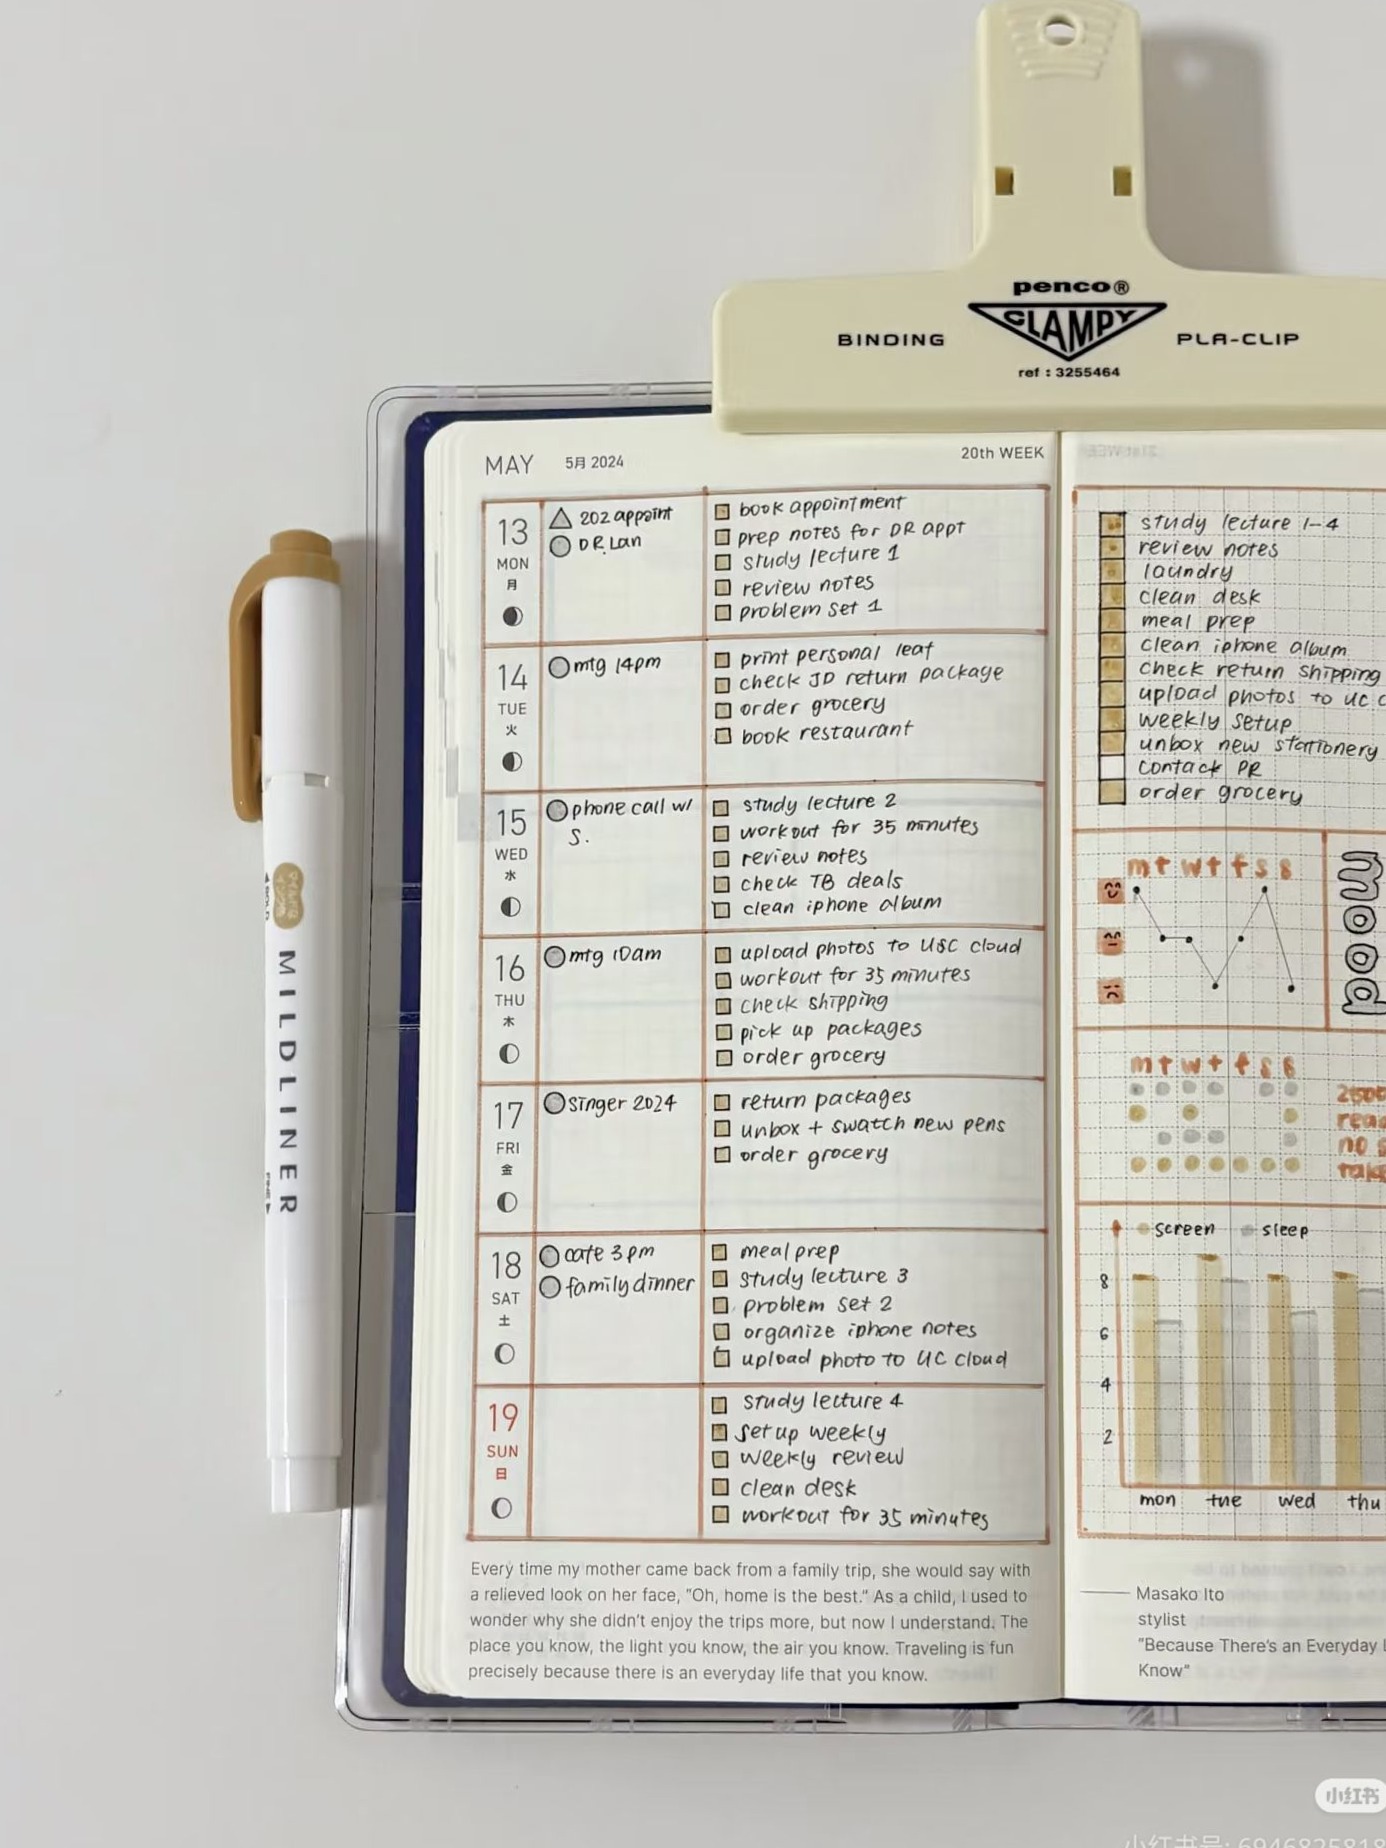 penco®
CLAMPY
BINDING
PLA-CLIP
ref : 3255464
MAY 5月 2024
20th WEEK
13
MON
月
202 appoint
DR. Lan
book appointment
prep notes for DR appt
study lecture 1
review notes
problem set 1
14
TUE
火
mtg 14pm
print personal leaf
check JD return package
order grocery
book restaurant
15
WED
水
phone call w/
S.
study lecture 2
workout for 35 minutes
review notes
check TB deals
clean iphone album
16
THU
木
mtg 10am
upload photos to U&C cloud
workout for 35 minutes
check shipping
pick up packages
order grocery
17
FRI
金
singer 2024
return packages
unbox + swatch new pens
order grocery
18
SAT
土
cate 3pm
family dinner
meal prep
study lecture 3
problem set 2
organize iphone notes
upload photo to UC cloud
19
SUN
日
study lecture 4
set up weekly
weekly review
clean desk
workout for 35 minutes
Every time my mother came back from a family trip, she would say with
a relieved look on her face, "Oh, home is the best." As a child, I used to
wonder why she didn't enjoy the trips more, but now I understand. The
place you know, the light you know, the air you know. Traveling is fun
precisely because there is an everyday life that you know.
study lecture 1-4
review notes
laundry
clean desk
meal prep
clean iphone album
check return shipping
upload photos to UC C
weekly setup
unbox new stationery
contack PR
order grocery
m t w t f s s
mood
m t w t f s s
no
screen sleep
8
6
4
2
mon tue wed thu
Masako Ito
stylist
"Because There's an Everyday L
Know"
MILDLINER
小红书